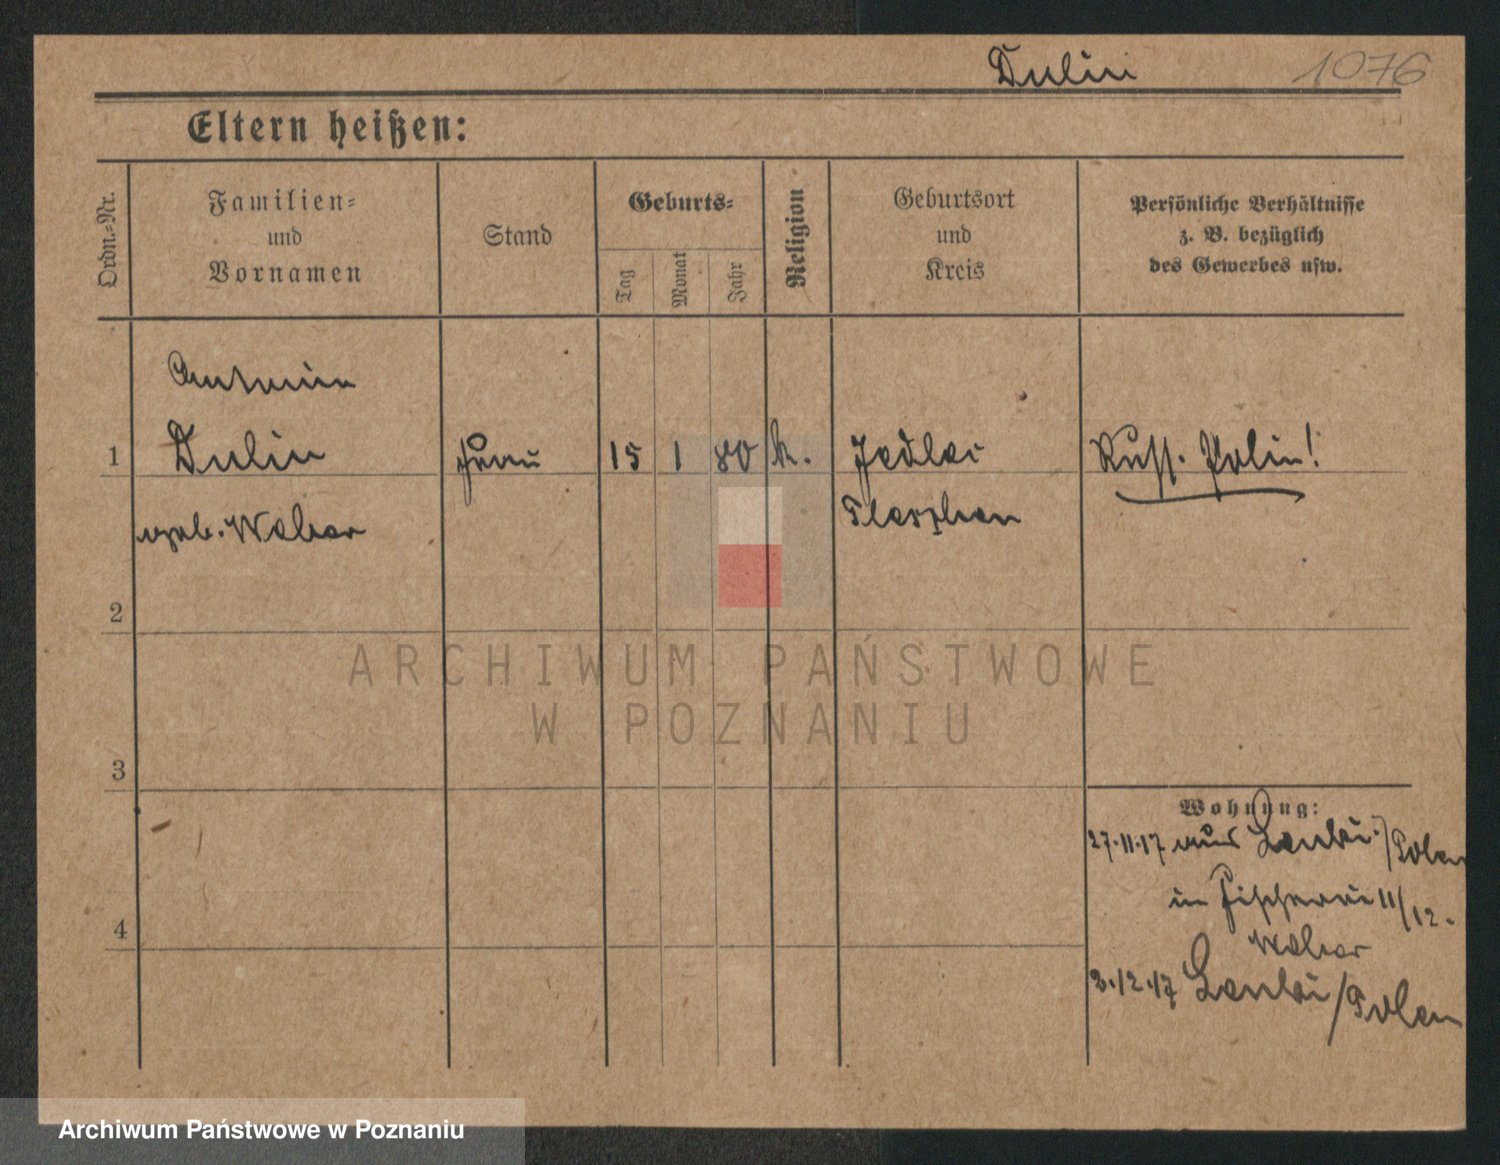 Dulin 1076
Eltern heißen:
Ordn.=Nr.
Familien=
und
Vornamen
Stand
Geburts=
Tag
Monat
Jahr
Religion
Geburtsort
und
Kreis
Persönliche Verhältnisse
z. B. bezüglich
des Gewerbes usw.
1
Dulin
Frau
15 1 80 k.
Jedlec
Russ. Polin!
geb. Weber
Pleschen
2
3
4
Wohnung:
27.11.17 aus /Polen
in Fischerei 11/12.
Weber
3.12.17 /Polen
ARCHIWUM PAŃSTWOWE
W POZNANIU
Archiwum Państwowe w Poznaniu